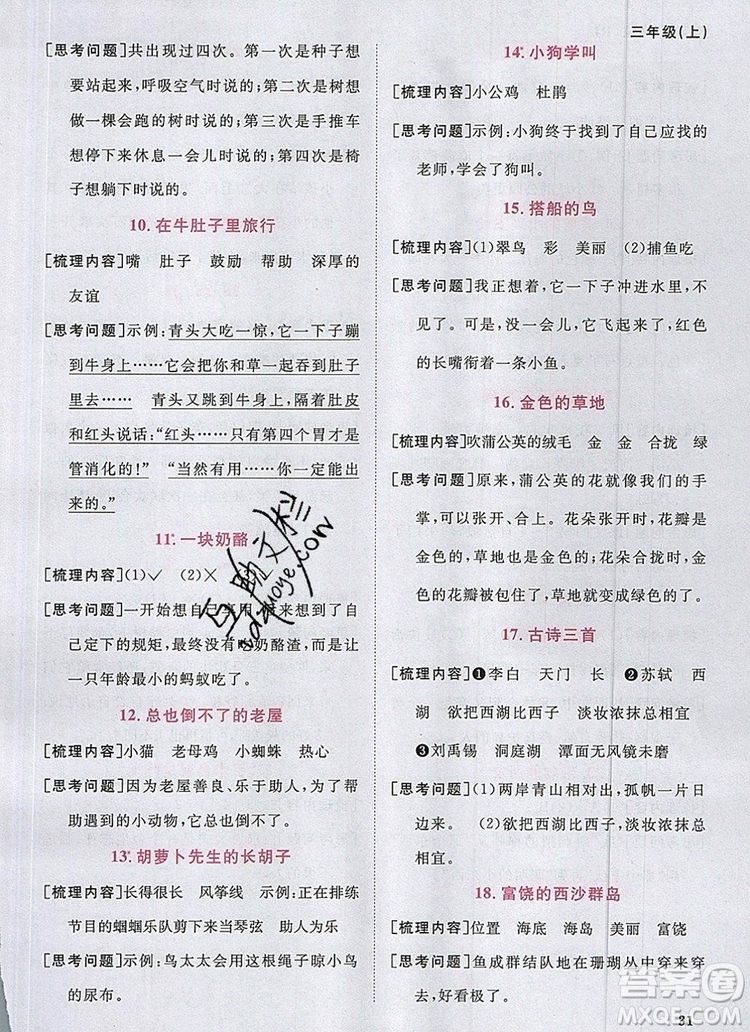 三年级(上)
[思考问题]共出现过四次。第一次是亭子想
要站起来,呼吸空气时说的;第二次是树想
做一棵会走的树时说的;第三次是手推车
想停下来休息一会儿时说的;第四次是椅
子想躺下时说的。
10. 在牛肚子里旅行
[梳理内容]嘴 肚子 鼓励 帮助 深厚的
友谊
[思考问题]示例:青头大吃一惊,它一下子蹦
到牛身上……它会把你和草一起吞到肚子
里去…… 青头又跳到牛身上,隔着肚皮
和红头说话:“红头……只有第四个胃才是
管消化的!” “当然有用……你一定能出
来的。”
11. 一块奶酪
[梳理内容](1)✓ (2)✕
[思考问题]一开始想自己享用,后来想到了自
己定下的规矩,最终没有吃奶酪渣,而是让
一只年龄最小的蚂蚁吃了。
12. 总也倒不了的老屋
[梳理内容]小猫 老母鸡 小蜘蛛 热心
[思考问题]因为老屋善良、乐于助人,为了帮
助遇到的小动物,它总也不倒。
13. 胡萝卜先生的长胡子
[梳理内容]长得很长 风筝线 示例:正在排练
节目的蝈蝈乐队剪下来当琴弦 助人为乐
[思考问题]示例:鸟太太会用这根绳子晾小鸟
的尿布。
14. 小狗学叫
[梳理内容]小公鸡 杜鹃
[思考问题]示例:小狗终于找到了自己应找的
老师,学会了狗叫。
15. 搭船的鸟
[梳理内容](1)翠鸟 彩 美丽 (2)捕鱼吃
[思考问题]我正想着,它一下子冲进水里,不
见了。可是,没一会儿,它飞起来了,红色
的长嘴衔着一条小鱼。
16. 金色的草地
[梳理内容]吹蒲公英的绒毛 金 金 合拢 绿
[思考问题]原来,蒲公英的花就像我们的手
掌,可以张开、合上。花朵张开时,花瓣是
金色的,草地也是金色的;花朵合拢时,金
色的花瓣被包住,草地就变成绿色的了。
17. 古诗三首
[梳理内容]❶李白 天门 长 ❷苏轼 西
湖 欲把西湖比西子 淡妆浓抹总相宜
❸刘禹锡 洞庭湖 潭面无风镜未磨
[思考问题](1)两岸青山相对出,孤帆一片日
边来。 (2)欲把西湖比西子,淡妆浓抹总
相宜。
18. 富饶的西沙群岛
[梳理内容]位置 海底 海岛 美丽 富饶
[思考问题]鱼成群结队地在珊瑚丛中穿来穿
去,好看极了。
31
互助文栏
答案圈
MXQE.COM